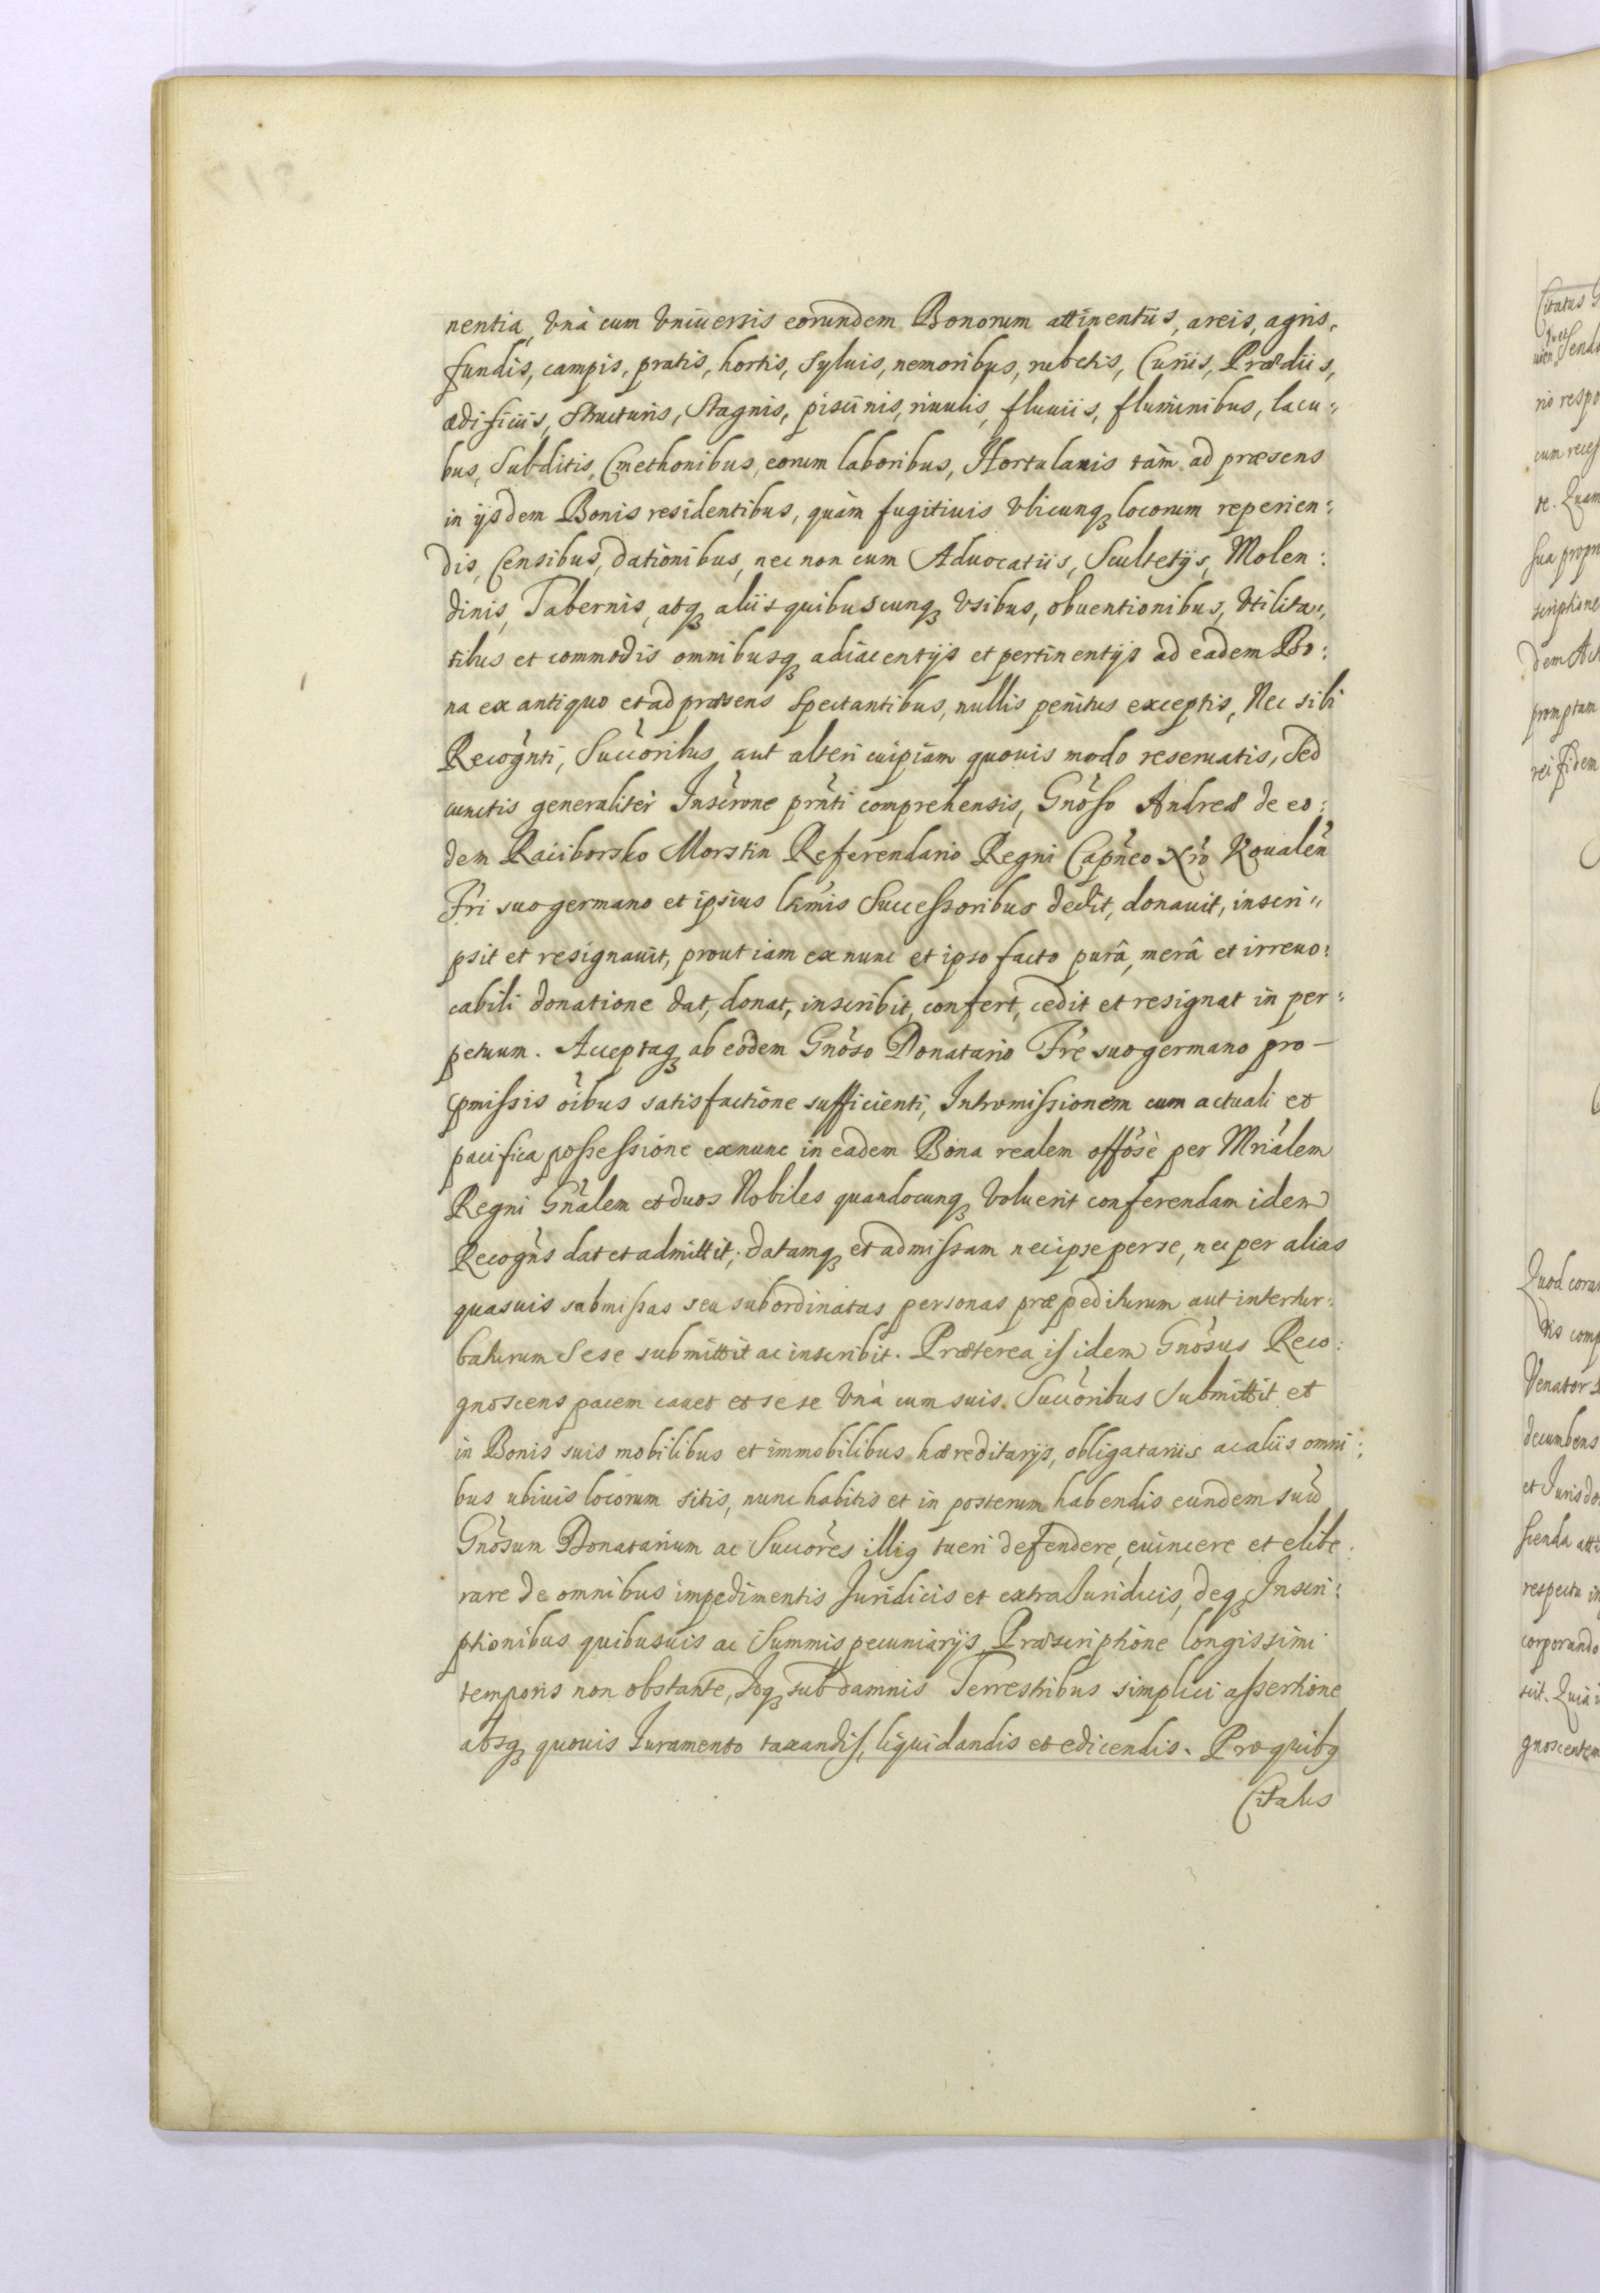 nentia, Vnà cum Vniuersis eorundem Bonorum attinentiis, areis, agris,
fundis, campis, pratis, hortis, Syluis, nemoribus, rubetis, Curiis, Prædiis,
ædificiis, Structuris, Stagnis, piscinis, riuulis, fluuiis, fluminibus, lacu„
bus, Subditis, Cmethonibus, eorum laboribus, Hortulanis tàm ad præsens
in ijsdem Bonis residentibus, quàm fugitiuis Vbicunqꝫ locorum reperien:
dis, Censibus, dationibus, nec non cum Aduocatiis, Scultetijs, Molen:
dinis, Tabernis, atqꝫ aliis quibuscunqꝫ Vsibus, obuentionibus, Vtilita„
tibus et commodis omnibusqꝫ adiacentijs et pertinentijs ad eadem Bo:
na ex antiquo et ad præsens Spectantibus, nullis penitus exceptis, Nec sibi
Recognti, Succoribus aut alteri cuipiam quouis modo reseruatis, Sed
cunctis generaliter Inscrone prnti comprehensis, Gnoso Andreæ de eo:
dem Raciborsko Morstin Referendario Regni Capneo Nro Koualen
Fri suo germano et ipsius ltimis Successoribus dedit, donauit, inscri„
psit et resignauit, prout iam ex nunc et ipso facto purâ, merâ et irreuo:
cabili donatione dat, donat, inscribit, confert, cedit et resignat in per:
petuum. Acceptaqꝫ ab eodem Gnoso Donatario Fre suo germano pro
pmissis oibus satisfactione sufficienti, Intromissionem cum actuali et
pacifica possessione ex nunc in eadem Bona realem offose per Mrialem
Regni Gnalem et duos Nobiles quandocunqꝫ Voluerit conferendam idem
Recogns dat et admittit, datamqꝫ et admissam nec ipse per se, nec per alias
quasuis submissas seu subordinatas personas præpediturum aut intertur:
baturum Sese submittit ac inscribit. Præterea is idem Gnosus Reco:
gnoscens pacem cauet et sese Vnà cum suis Succoribus Submittit et
in Bonis suis mobilibus et immobilibus hæreditarijs, obligatariis ac aliis omni:
bus ubiuis locorum sitis, nunc habitis et in posterum habendis eundem suu
Gnosum Donatarium ac Succores illiꝯ tueri defendere, euincere et elibe:
rare de omnibus impedimentis Juridicis et extra Juridicis, deqꝫ Inscri:
ptionibus quibusuis ac Summis pecuniarijs, Præscriptione longissimi
temporis non obstante, Idqꝫ sub damnis Terrestribus simplici assertione
absqꝫ quouis Iuramento taxandis, liquidandis et edicendis. Pro quibꝯ
Citatus